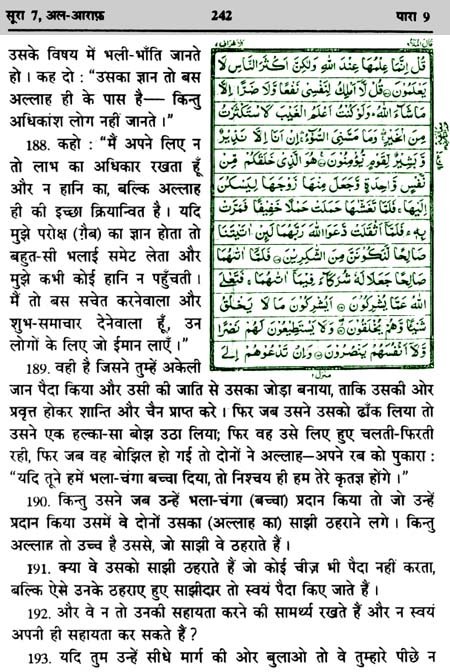 सूरा 7, अल-आराफ़ 242 पारा 9
उसके विषय में भली-भाँति जानते
हो । कह दो : “उसका ज्ञान तो बस
अल्लाह ही के पास है— किन्तु
अधिकांश लोग नहीं जानते ।”
188. कहो : “मैं अपने लिए न
तो लाभ का अधिकार रखता हूँ
और न हानि का, बल्कि अल्लाह
ही की इच्छा क्रियान्वित है । यदि
मुझे परोक्ष (ग़ैब) का ज्ञान होता तो
बहुत-सी भलाई समेट लेता और
मुझे कभी कोई हानि न पहुँचती ।
मैं तो बस सचेत करनेवाला और
शुभ-समाचार देनेवाला हूँ, उन
लोगों के लिए जो ईमान लाएँ ।”
قُلْ إِنَّمَا عِلْمُهَا عِنْدَ اللَّهِ وَلَٰكِنَّ أَكْثَرَ النَّاسِ لَا
يَعْلَمُونَ ۝ قُلْ لَّا أَمْلِكُ لِنَفْسِي نَفْعًا وَّلَا ضَرًّا إِلَّا
مَا شَاءَ اللَّهُ وَلَوْ كُنْتُ أَعْلَمُ الْغَيْبَ لَاسْتَكْثَرْتُ
مِنَ الْخَيْرِ وَمَا مَسَّنِيَ السُّوءُ إِنْ أَنَا إِلَّا نَذِيرٌ
وَّبَشِيرٌ لِّقَوْمٍ يُؤْمِنُونَ ۝ هُوَ الَّذِي خَلَقَكُمْ مِّنْ
نَّفْسٍ وَّاحِدَةٍ وَّجَعَلَ مِنْهَا زَوْجَهَا لِيَسْكُنَ
إِلَيْهَا فَلَمَّا تَغَشَّاهَا حَمَلَتْ حَمْلًا خَفِيفًا فَمَرَّتْ
بِهِ فَلَمَّا أَثْقَلَتْ دَّعَوَا اللَّهَ رَبَّهُمَا لَئِنْ آتَيْتَنَا
صَالِحًا لَّنَكُونَنَّ مِنَ الشَّاكِرِينَ ۝ فَلَمَّا آتَاهُمَا
صَالِحًا جَعَلَا لَهُ شُرَكَاءَ فِيمَا آتَاهُمَا فَتَعَالَى
اللَّهُ عَمَّا يُشْرِكُونَ ۝ أَيُشْرِكُونَ مَا لَا يَخْلُقُ
شَيْئًا وَّهُمْ يُخْلَقُونَ ۝ وَلَا يَسْتَطِيعُونَ لَهُمْ نَصْرًا
وَّلَا أَنْفُسَهُمْ يَنْصُرُونَ ۝ وَإِنْ تَدْعُوهُمْ إِلَى
189. वही है जिसने तुम्हें अकेली
जान पैदा किया और उसी की जाति से उसका जोड़ा बनाया, ताकि उसकी ओर
प्रवृत्त होकर शान्ति और चैन प्राप्त करे । फिर जब उसने उसको ढाँक लिया तो
उसने एक हल्का-सा बोझ उठा लिया; फिर वह उसे लिए हुए चलती-फिरती
रही, फिर जब वह बोझिल हो गई तो दोनों ने अल्लाह—अपने रब को पुकारा :
“यदि तूने हमें भला-चंगा बच्चा दिया, तो निश्चय ही हम तेरे कृतज्ञ होंगे ।”
190. किन्तु उसने जब उन्हें भला-चंगा (बच्चा) प्रदान किया तो जो उन्हें
प्रदान किया उसमें वे दोनों उसका (अल्लाह का) साझी ठहराने लगे । किन्तु
अल्लाह तो उच्च है उससे, जो साझी वे ठहराते हैं ।
191. क्या वे उसको साझी ठहराते हैं जो कोई चीज़ भी पैदा नहीं करता,
बल्कि ऐसे उनके ठहराए हुए साझीदार तो स्वयं पैदा किए जाते हैं ।
192. और वे न तो उनकी सहायता करने की सामर्थ्य रखते हैं और न स्वयं
अपनी ही सहायता कर सकते हैं ?
193. यदि तुम उन्हें सीधे मार्ग की ओर बुलाओ तो वे तुम्हारे पीछे न